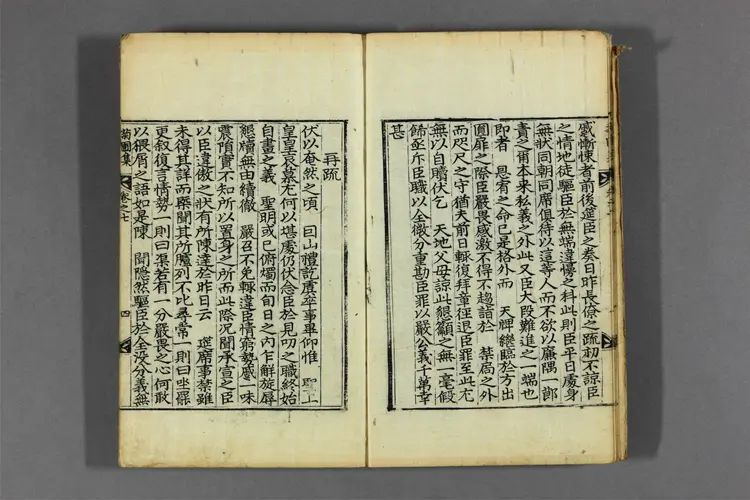 感慚悚者前後筵臣之奏日昨長僚之疏初不諒臣
之情地徒驅臣於無端違慢之科此則臣平日處身
無狀同朝同席俱待以這等人而不欲以廉隅一節
責之甫本來私義之外此又臣大段難進之一端也
即者 恩宥之命已是格外而 天牌繼臨於方出
圓扉之際臣嚴畏感激不得不趨詣於 禁扃之外
而咫尺之守猶夫前日輒復拜章徑退臣罪至此尤
無以自贖伏乞 天地父母諒此懇籲之無一毫假
飾亟斥臣職以全微分重勘臣罪以嚴公義千萬幸
甚
再疏
伏以奄然之頃 因山禮訖虞卒事畢仰惟 聖上
皇皇哀慕尤何以堪處仍伏念臣於見叨之職終始
自畫之義 聖明或已俯燭而旬日之內乍解旋縻
懇牘無由續徹 嚴召不免輒違臣情窮勢蹙一味
震隕實不知所以置身之所而此際況聞承宣之臣
以臣違傲之狀有所陳達於昨日云 筵席事禁雖
未得其詳而槩聞其所臚列不比尋常一則曰坐罷
更叙復言情勢一則曰渠若有一分嚴畏之心何敢
以猥屑之語如是陳 聞隱然驅臣於全沒分義無
菊圃集 卷之七 四